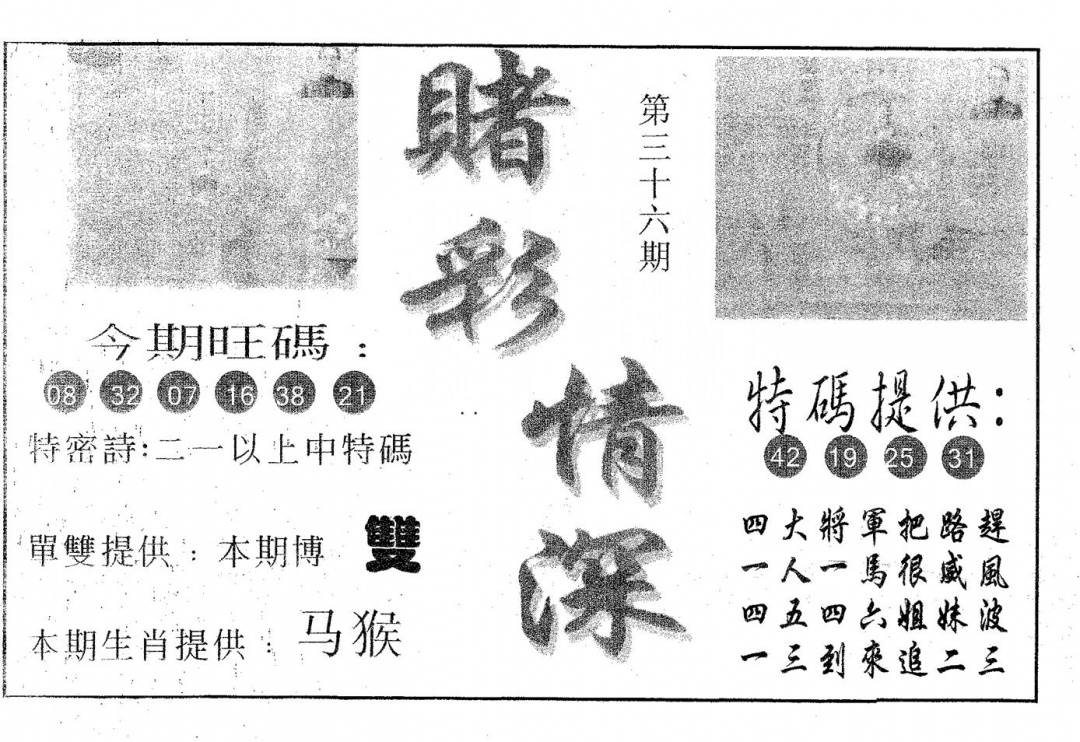 賭彩情深
第三十六期
今期旺碼：
08 32 07 16 38 21
特密詩:二一以上中特碼
單雙提供：本期博 雙
本期生肖提供：马猴
特碼提供：
42 19 25 31
四大將軍把路趕
一人一馬很威風
四五四六姐妹波
一三到來追二三